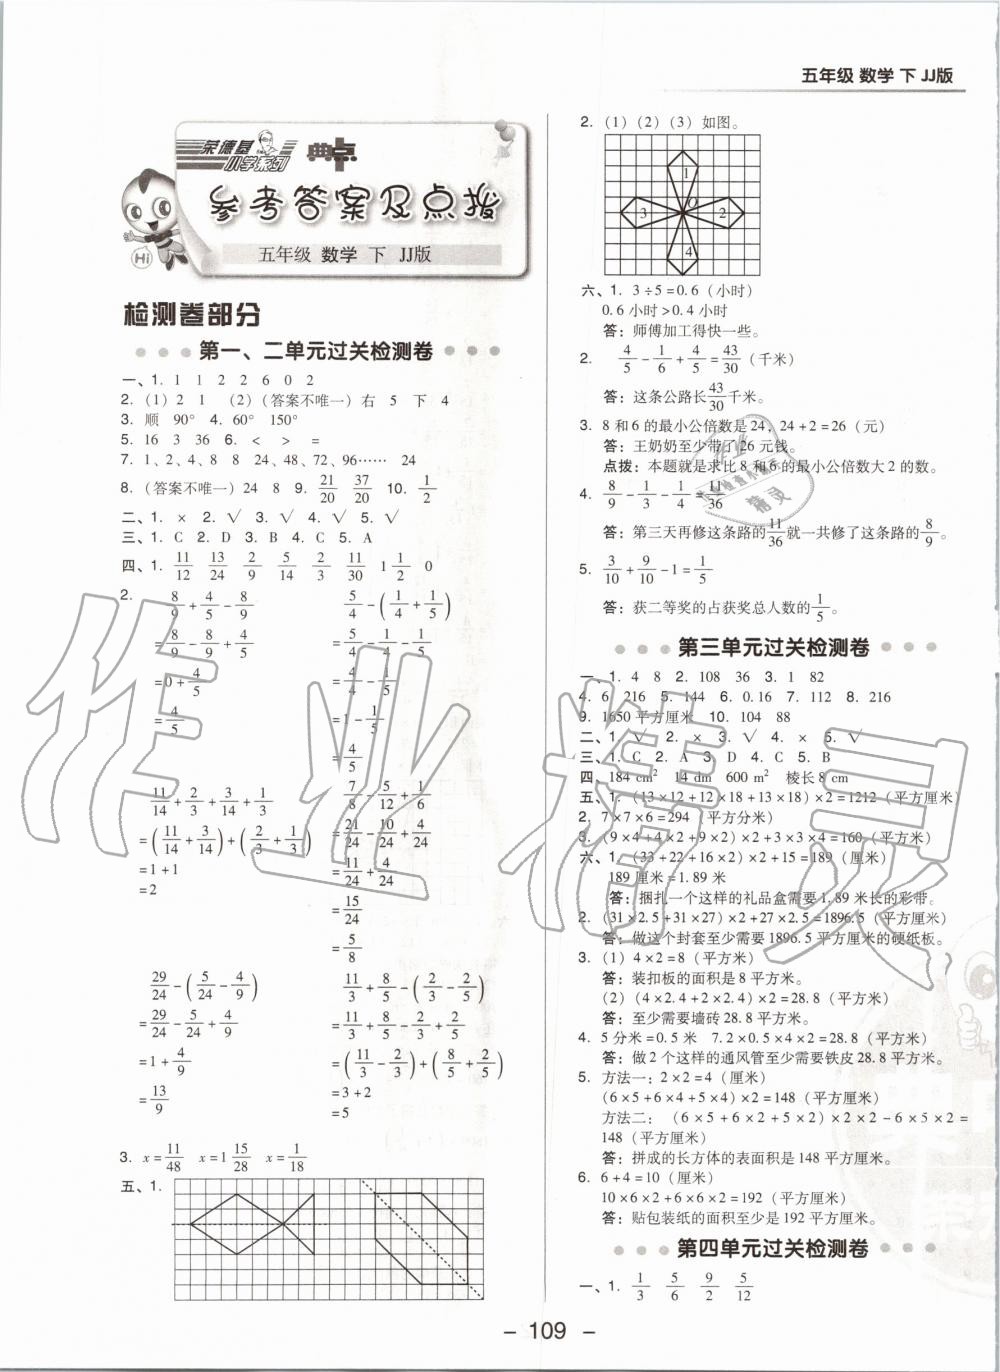 五年级 数学 下 JJ版
荣德基
小学系列
典点
参考答案及点拨
五年级 数学 下 JJ版
Hi
检测卷部分
第一、二单元过关检测卷
一、1. 1 1 2 2 6 0 2
2. (1) 2 1 (2) (答案不唯一) 右 5 下 4
3. 顺 90° 4. 60° 150°
5. 16 3 36 6. < > =
7. 1、2、4、8 8 24、48、72、96…… 24
8. (答案不唯一) 24 8 9. 21/20 37/20 10. 1/2
二、1. × 2. √ 3. √ 4. √ 5. √
三、1. C 2. D 3. B 4. C 5. A
四、1. 11/12 13/24 2/9 5/14 2/3 11/30 1 1/2 0
2. 8/9+4/5-8/9
=8/9-8/9+4/5
=0+4/5
=4/5
5/4-(1/4+1/5)
=5/4-1/4-1/5
=4/4-1/5
=1-1/5
=4/5
11/14+2/3+3/14+1/3
=(11/14+3/14)+(2/3+1/3)
=1+1
=2
7/8-5/12+1/6
=21/24-10/24+4/24
=11/24+4/24
=15/24
=5/8
29/24-(5/24-4/9)
=29/24-5/24+4/9
=1+4/9
=13/9
11/3+8/5-(2/3-2/5)
=11/3+8/5-2/3+2/5
=(11/3-2/3)+(8/5+2/5)
=3+2
=5
3. x=11/48 x=1 15/28 x=1/18
五、1.
2. (1)(2)(3) 如图。
1
O
3 2
4
六、1. 3÷5=0.6(小时)
0.6小时>0.4小时
答：师傅加工得快一些。
2. 4/5-1/6+4/5=43/30(千米)
答：这条公路长43/30千米。
3. 8和6的最小公倍数是24，24+2=26(元)
答：王奶奶至少带了26元钱。
点拨：本题就是求比8和6的最小公倍数大2的数。
4. 8/9-1/3-1/4=11/36
答：第三天再修这条路的11/36就一共修了这条路的8/9。
5. 3/10+9/10-1=1/5
答：获二等奖的占获奖总人数的1/5。
第三单元过关检测卷
一、1. 4 8 2. 108 36 3. 1 82
4. 6 216 5. 144 6. 0.16 7. 112 8. 216
9. 1650平方厘米 10. 104 88
二、1. √ 2. × 3. √ 4. × 5. √
三、1. C 2. A 3. D 4. C 5. B
四、184 cm² 14 dm 600 m² 棱长8 cm
五、1. (13×12+12×18+13×18)×2=1212(平方厘米)
2. 7×7×6=294(平方分米)
3. (9×4+4×2+9×2)×2+3×3×4=160(平方厘米)
六、1. (33+22+16×2)×2+15=189(厘米)
189厘米=1.89米
答：捆扎一个这样的礼品盒需要1.89米长的彩带。
2. (31×2.5+31×27)×2+27×2.5=1896.5(平方厘米)
答：做这个封套至少需要1896.5平方厘米的硬纸板。
3. (1) 4×2=8(平方米)
答：装扣板的面积是8平方米。
(2) (4×2.4+2×2.4)×2=28.8(平方米)
答：至少需要墙砖28.8平方米。
4. 5分米=0.5米 7.2×0.5×4×2=28.8(平方米)
答：做2个这样的通风管至少需要铁皮28.8平方米。
5. 方法一：2×2=4(厘米)
(6×5+6×4+5×4)×2=148(平方厘米)
方法二：(6×5+6×2+5×2)×2×2-6×5×2=
148(平方厘米)
答：拼成的长方体的表面积是148平方厘米。
6. 6+4=10(厘米)
10×6×2+6×6×2=192(平方厘米)
答：贴包装纸的面积至少是192平方厘米。
第四单元过关检测卷
一、1. 1/3 5/6 9/2 5/12
- 109 -
作业精灵